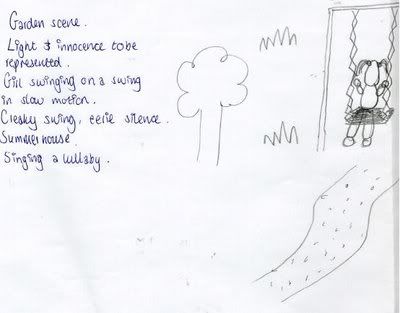 Garden scene.
Light & innocence to be
represented.
Girl swinging on a swing
in slow motion.
Creaky swing, eerie silence.
Summerhouse.
Singing a lullaby.